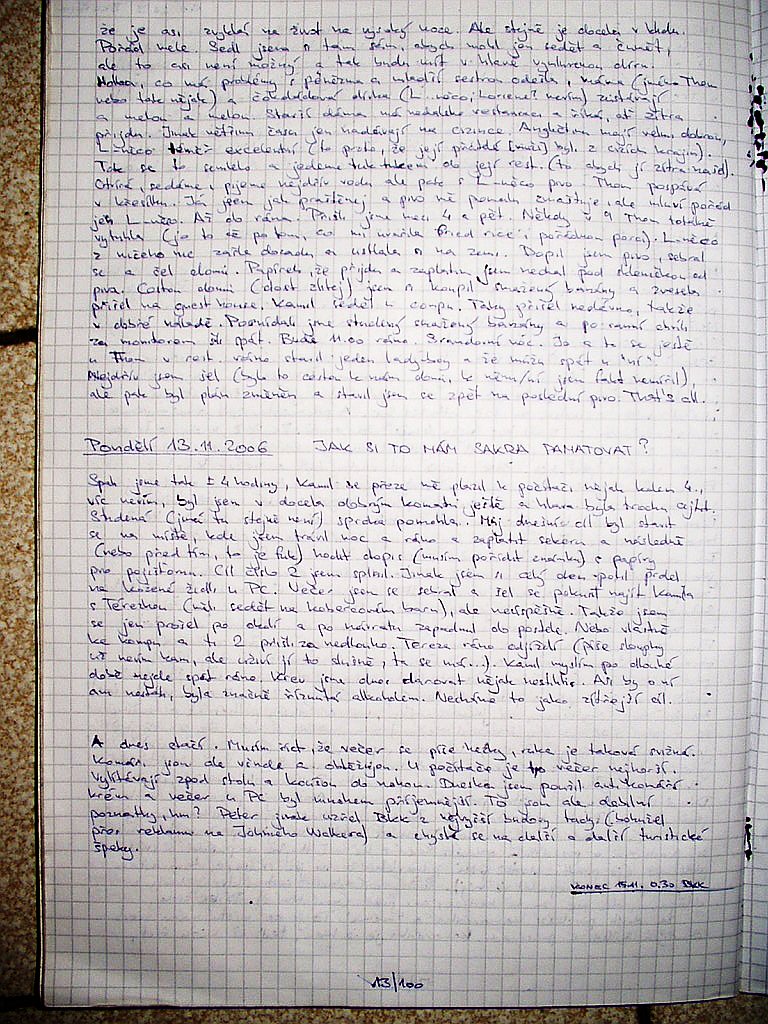 že je asi zvyklá na život na vysoký noze. Ale stejně je docela v klidu.
Pořád mele. Sedl jsem si tam sám, abych mohl jen sedět a čumět,
ale to asi není možný a tak budu mít v hlavě díru.
Holka, co má problémy s penězma a mladší sestrou odešla, máma (jménem Thom
nebo tak nějak) a čokoládová dívka (L něco, nevím) zůstávají
a melou a melou. Starší dáma má nedaleko restauraci a říká, ať zítra
přijdu. Jinak většinu času jen nadávají na cizince. Angličtinu mají velmi dobrou,
L-něco téměř excelentní (to proto, že její přátelé byli z cizích krajin).
Tak se to semlelo a jedeme tuktukem do její rest. (to abych jí zítra našel).
Otvírá, sedáme, pijeme nejdřív vodu ale pak s L-něco pivo. Thom pospává
v křesílku. Já jsem jak praštěnej a pivo mě pomalu zmáhá, ale mluví pořád
jen L-něco. Až do rána. Přišli jsme mezi 4 a pět. Někdy v 9 Thom totálně
vytuhla (jo to se po tom, co mi uvařila fried rice i pořádnou porci). L-něco
z ničeho nic zašla dozadu a ustlala si na zemi. Dopil jsem pivo, sebral
se a šel domů. Papírek, že přijdu a zaplatím jsem nechal pod skleničkou od
piva. Cestou domů (dost zlitej) jsem si koupil smažený banány a zvesela
přišel na guest house. Kamil seděl u compu. Taky přišel nedávno, takže
v dobré náladě. Posnídali jsme studený smažený banány a po ranní chvíli
za monitorem šli spát. Bude 11.00 ráno. Brandowní noc. Jo a to se ještě
u Thom v rest. ráno stavil jeden ladyboy a že můžu spát u "ní".
Nejdřív jsem šel (bylo to cestou k nám domů, k němu/ní jsem fakt nemířil),
ale pak byl plán změněn a stavil jsem se zpět na poslední pivo. That's all.
Pondělí 13.11.2006 JAK SI TO MÁM SAKRA PAMATOVAT?
Spali jsme tak ± 4 hodiny, Kamil se přeze mě plazil k počítači nějak kolem 4.,
víc nevím, byl jsem v docela dobrým komatu ještě a hlava byla trochu ajfrt.
Studená (jiná tu stejně není) sprcha pomohla. Můj dnešní cíl byl stavit
se na místě, kde jsem trávil noc a ráno a zaplatit sekeru a následně
(nebo před tím, to je fuk) hodit dopis (musím pořídit známku) s papíry
pro pojišťovnu. Cíl číslo 2 jsem splnil. Jinak jsem si celý den potil prdel
na kožené židli u PC. Večer jsem se sebral a šel se pokusit najít Kamila
s Terezkou (měli sedět na kobercovém baru), ale neúspěšně. Takže jsem
se jen prošel po okolí a po návratu zapadnul do postele. Nebo vlastně
ke kompu a ti 2 přišli za nedlouho. Tereza ráno odjíždí (píše sloupky
už nevím kam, ale uživí jí to slušně, ta se má..). Kamil myslím po dlouhé
době nejde spát ráno. Krev jsme dnes darovat nějak nestihli. Asi by o ní
ani nestáli, byla značně říznutá alkoholem. Nechme to jako zítřejší cíl.
A dnes stačí. Musím říct, že večer se píše hezky, ruka je taková svižná.
Komáři jsou ale všude a obtěžujou. U počítače je to večer nejhorší.
Vylítávají zpod stolu a koušou do nohou. Dneska jsem použil antikomáří
krém a večer u PC byl mnohem příjemnější. To jsou ale debilní
poznatky, hm? Peter jinak uzřel BKK z nejvyšší budovy tady (bohužel
přes reklamu na Johnieho Walkera) a chystá se na další a další turistické
špeky.
KONEC 15.11. 0.30 BKK
13/100